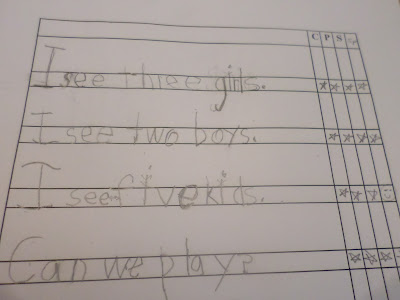 C P S Sp
I see three girls.
I see two boys.
I see five kids.
Can we play?